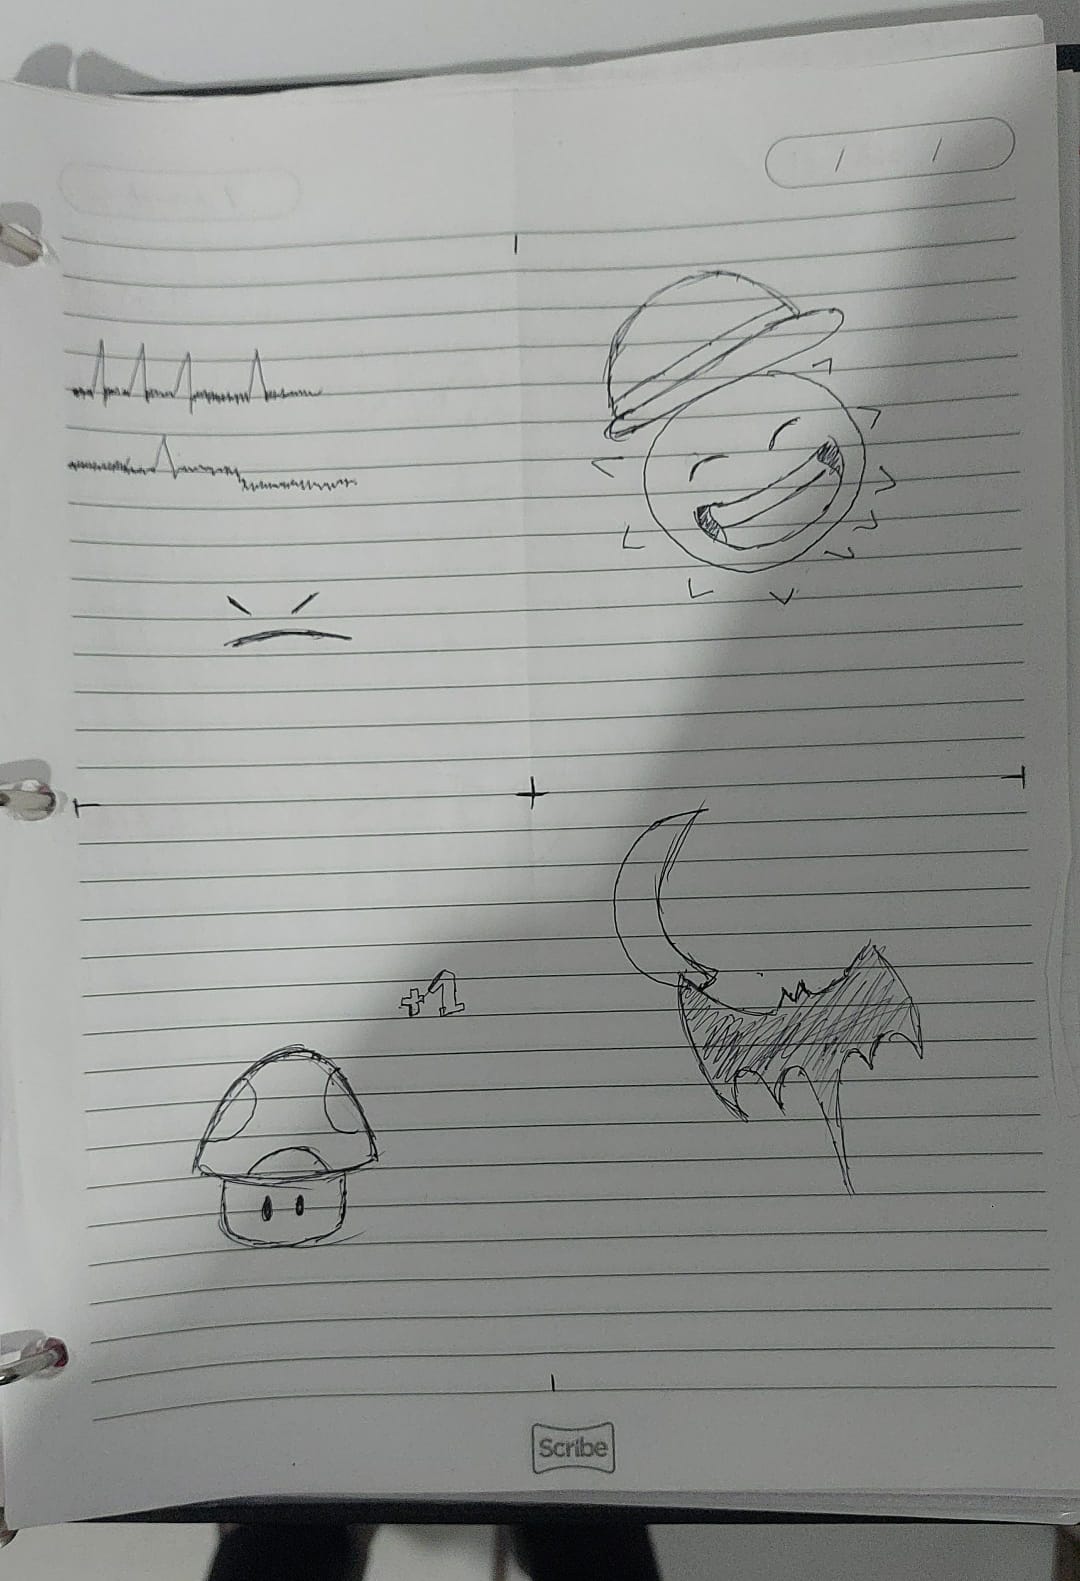 / /
+1
Scribe